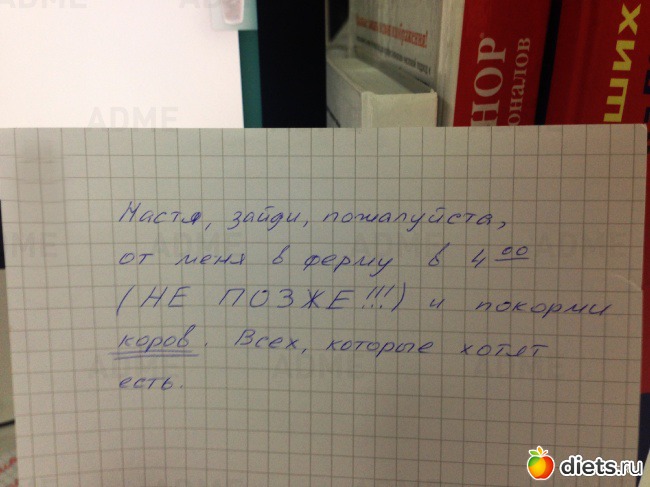 ADME
НОР
оналов
хищ
Настя, зайди, пожалуйста,
от меня в ферму в 4 00
(НЕ ПОЗЖЕ!!!) и покорми
коров. Всех, которые хотят
есть.
diets.ru